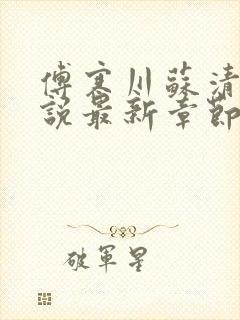 傅寒川蘇清
說最新章節
破軍星